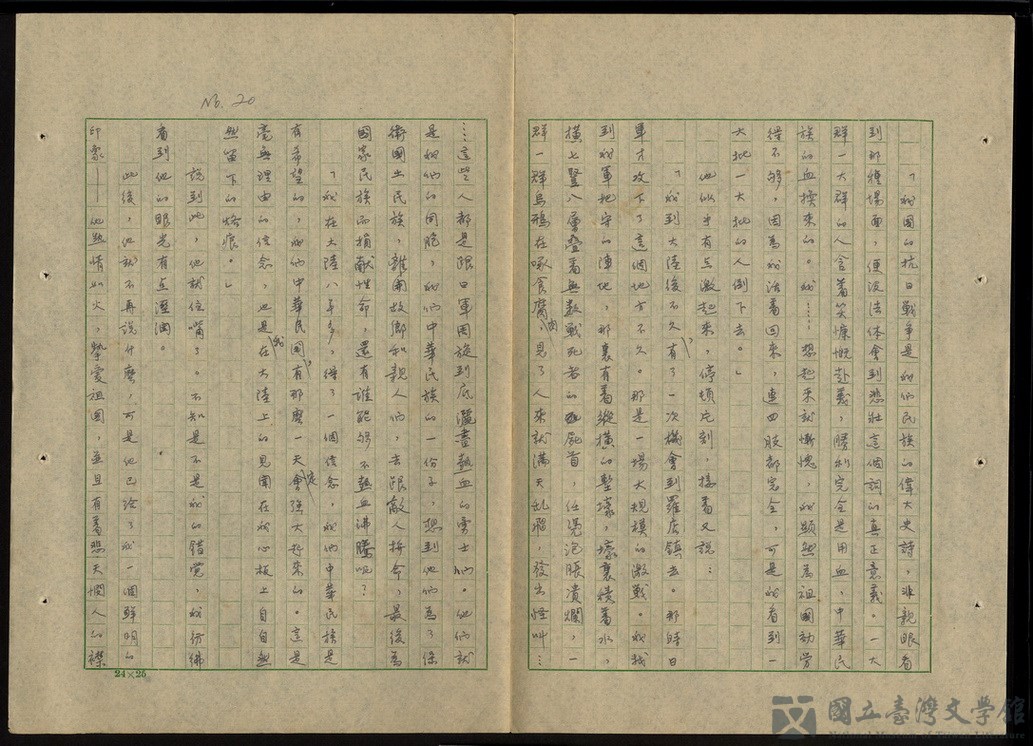 No. 20
「我国的抗日戰爭是我們民族的偉大史詩，非親眼看
到那種場面，便沒法体會到悲壯這個詞的真正意義。一大
群一大群的人含着笑慷慨赴義，勝利完全是用血，中華民
族的血換來的。我……想起來就慚愧，我顯然為祖國効勞
得不够，因為我活着回來，連四肢都完全，可是我看到一
大批一大批的人倒下去。」
他似乎有点激起來，停頓片刻，接着又說：
「我到大陸後不久，有了一次機會到羅店鎮去。那時日
軍才攻下了這個地方不久。那是一場大規模的激戰。我找
到我軍把守的陣地，那裏有着縱橫的塹壕，壕裏積着水，
橫七豎八層疊着無數戰死者的屍首，任憑泡脹潰爛，一
群一群烏鴉在啄食腐肉，見了人來就滿天乱飛，發出怪叫…
…這些人都是跟日軍周旋到底灑盡熱血的勇士們。他們就
是我們的同胞，我們中華民族的一份子，想到他們為了保
衛國土民族，離開故鄉和親人們，去跟敵人拚命，最後為
國家民族而捐献性命，還有誰能够不熱血沸騰呢？
「我在大陸八年多，得了一個信念，我們中華民族是
有希望的，我們中華民國，有那麼一天會定強大起來的。這是
毫無理由的信念，也是我在大陸上的見聞在我心板上自自然
然留下的烙痕。」
說到此，他就住嘴了。不知是不是我的錯覺，我彷彿
看到他的眼光有点溼潤。
此後，他就不再說什麼，可是他已給了我一個鮮明的
印象——他熱情如火，摯愛祖國，並且有着悲天憫人的襟
24×25
國立臺灣文學館
National Museum of Taiwan Literature